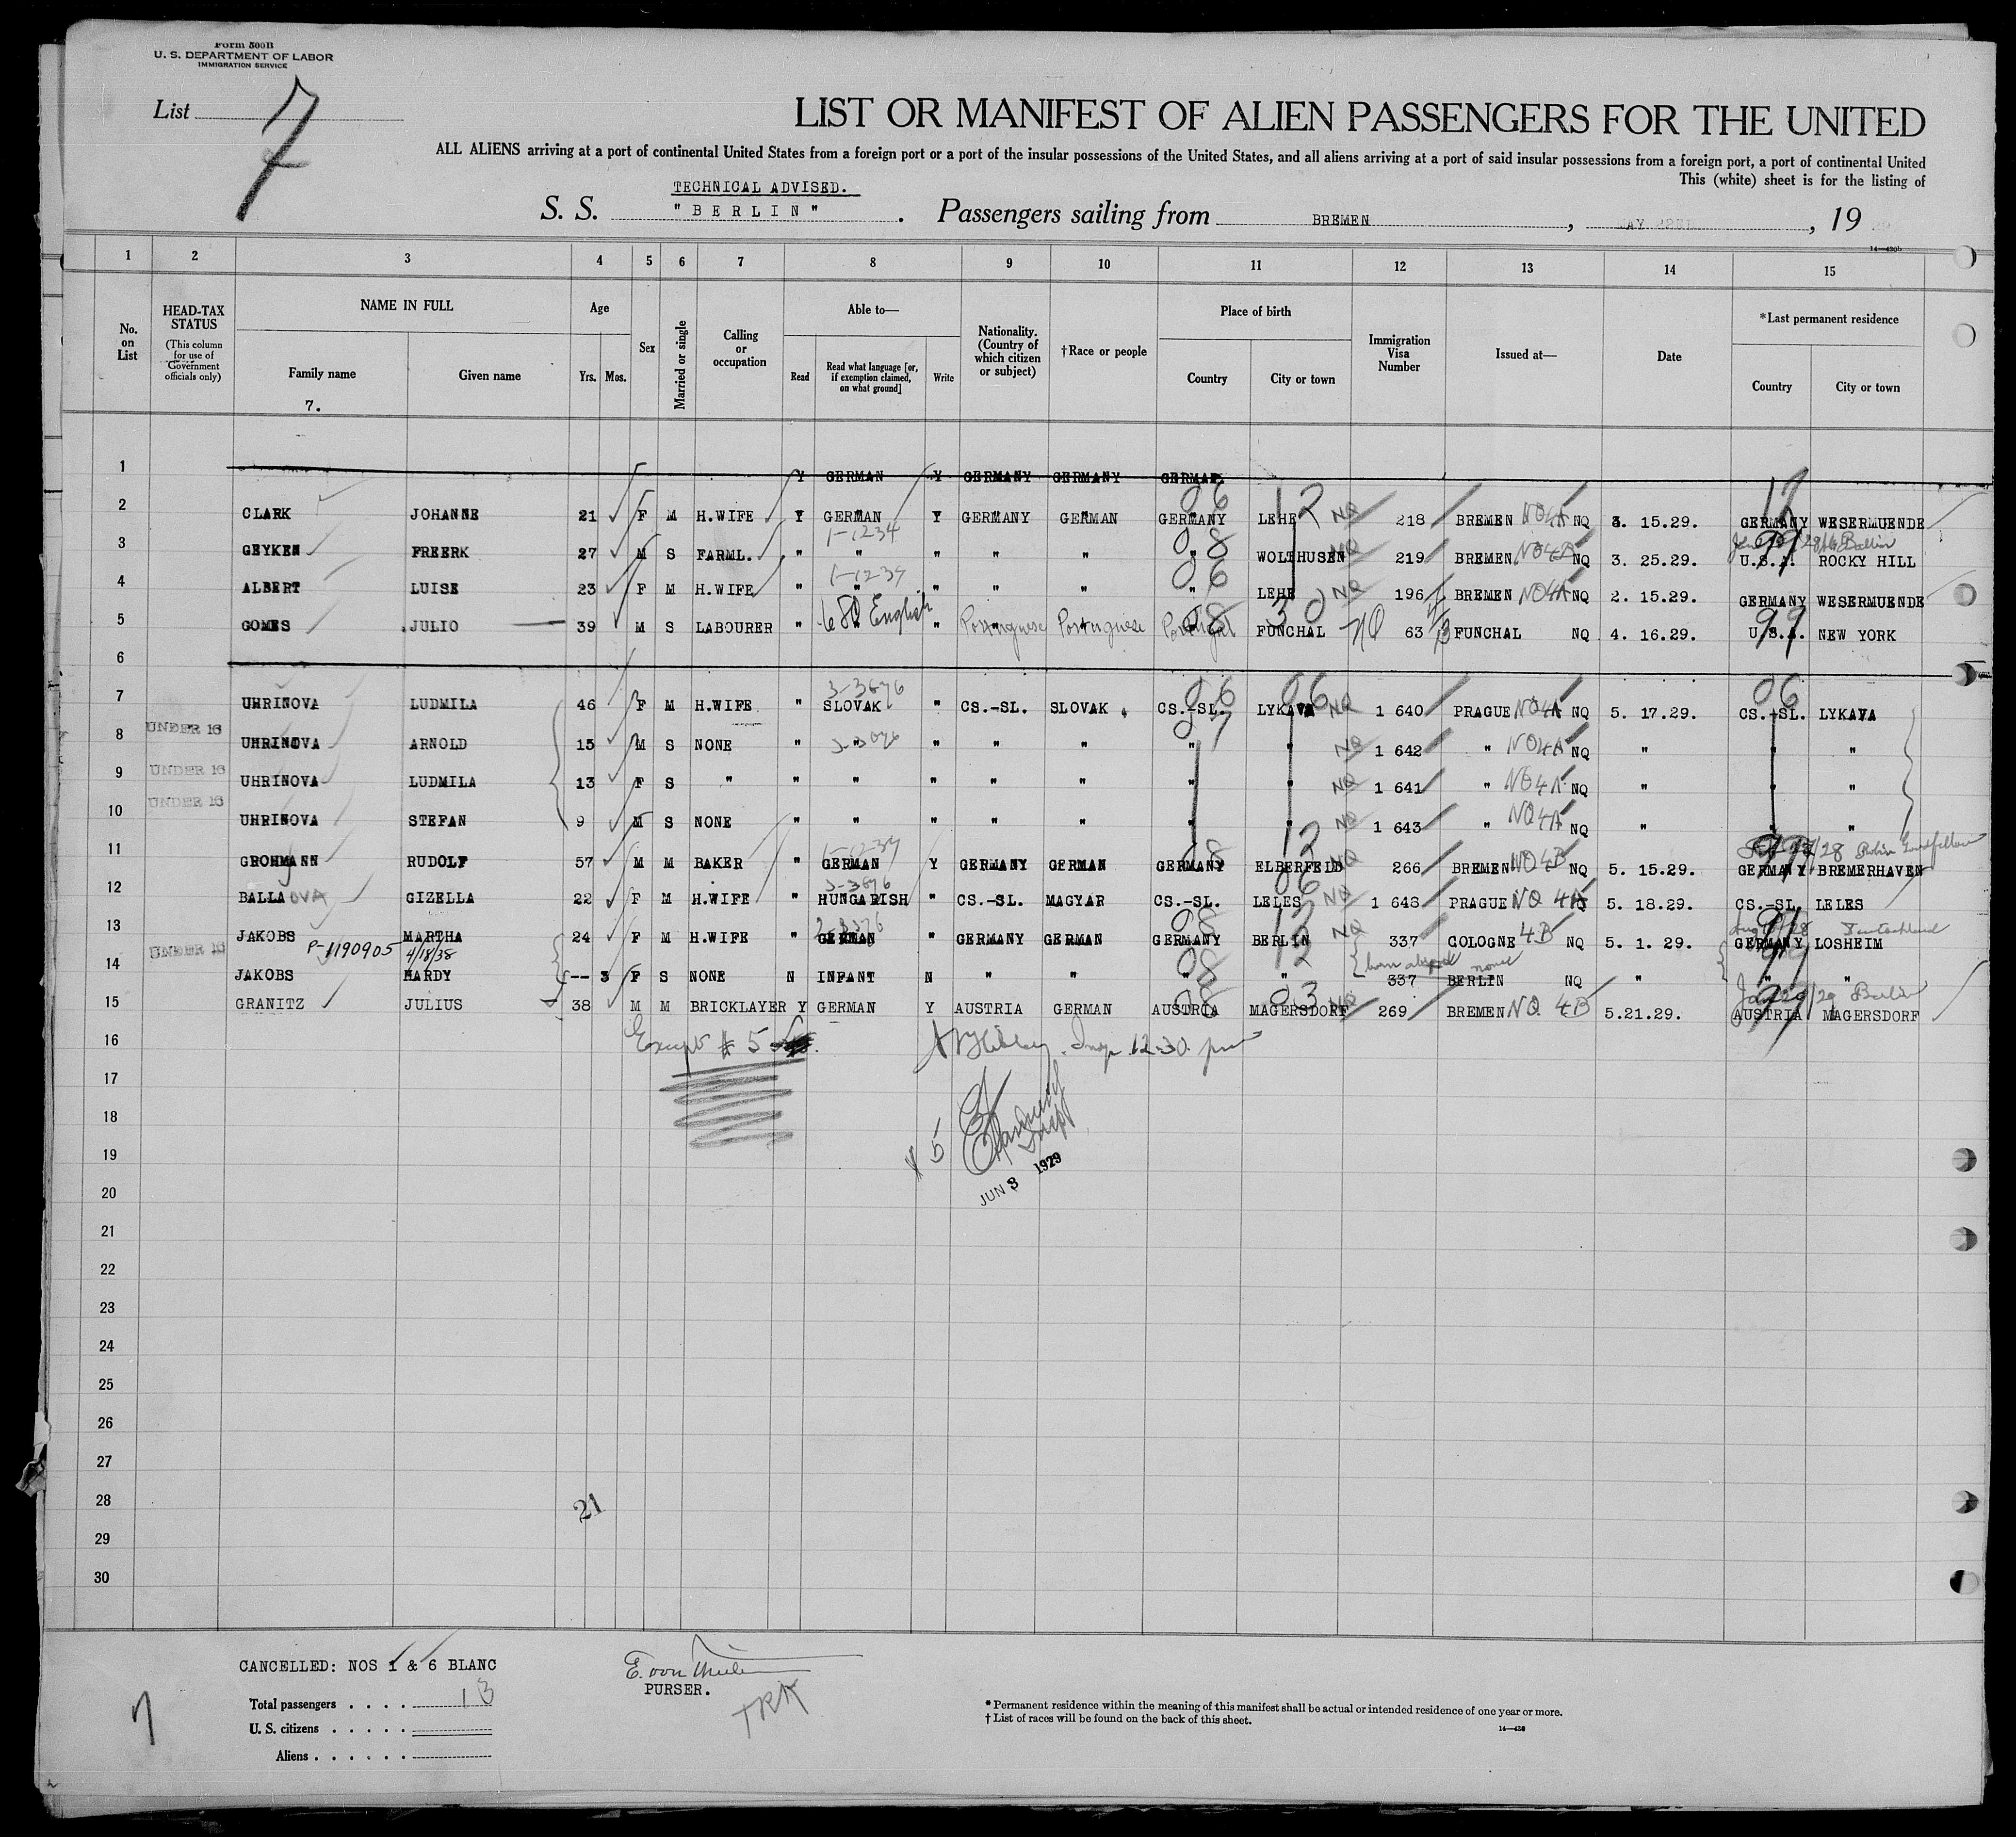 Form 500B
U. S. DEPARTMENT OF LABOR
IMMIGRATION SERVICE
List 7
LIST OR MANIFEST OF ALIEN PASSENGERS FOR THE UNITED
ALL ALIENS arriving at a port of continental United States from a foreign port or a port of the insular possessions of the United States, and all aliens arriving at a port of said insular possessions from a foreign port, a port of continental United
This (white) sheet is for the listing of
TECHNICAL ADVISED.
S. S. "BERLIN". Passengers sailing from BREMEN, , 19
14—430b
1 2 3 4 5 6 7 8 9 10 11 12 13 14 15
No. on List
HEAD-TAX STATUS
(This column for use of Government officials only)
NAME IN FULL
Family name
Given name
7.
Age
Yrs. Mos.
Sex
Married or single
Calling or occupation
Able to—
Read
Read what language [or, if exemption claimed, on what ground]
Write
Nationality. (Country of which citizen or subject)
†Race or people
Place of birth
Country
City or town
Immigration Visa Number
Issued at—
Date
*Last permanent residence
Country
City or town
1 Y GERMAN Y GERMANY GERMANY GERMAN.
06 12 12
2 CLARK JOHANNE 21 F M H.WIFE Y GERMAN Y GERMANY GERMAN GERMANY LEHE NQ 218 BREMEN NQ4A NQ 3. 15.29. GERMANY WESERMUENDE
1-1234 08 99
3 GEYKEN FREERK 27 M S FARML. " " " " " " WOLTHUSEN NQ 219 BREMEN. NQ4A NQ 3. 25.29. U.S.A. ROCKY HILL
1-1234 06
4 ALBERT LUISE 23 F M H.WIFE " " " " " " LEHE NQ 196 BREMEN NQ4A NQ 2. 15.29. GERMANY WESERMUENDE
5 GOMES JULIO 39 M S LABOURER " English " Portuguese Portuguese Portugal FUNCHAL NQ 63 FUNCHAL NQ 4. 16.29. U.S.A. NEW YORK
6
3-3676 06 06 06
7 UHRINOVA LUDMILA 46 F M H.WIFE " SLOVAK " CS.-SL. SLOVAK CS.-SL. LYKAVA NQ 1 640 PRAGUE NQ4A NQ 5. 17.29. CS.-SL. LYKAVA
8 UNDER 16 UHRINOVA ARNOLD 15 M S NONE " " " " " " " NQ 1 642 " NQ4A NQ " " "
9 UNDER 16 UHRINOVA LUDMILA 13 F S " " " " " " " " NQ 1 641 " NQ4A NQ " " "
10 UNDER 16 UHRINOVA STEFAN 9 M S NONE " " " " " " " NQ 1 643 " NQ4A NQ " " "
1-1234
11 GROHMANN RUDOLF 57 M M BAKER " GERMAN Y GERMANY GERMAN GERMANY ELBERFELD NQ 266 BREMEN NQ4B NQ 5. 15.29. GERMANY BREMERHAVEN
3-3676
12 BALLAOVA GIZELLA 22 F M H.WIFE " HUNGARISH " CS.-SL. MAGYAR CS.-SL. LELES NQ 1 648 PRAGUE NQ 4A 5. 18.29. CS.-SL. LELES
13 JAKOBS MARTHA 24 F M H.WIFE " GERMAN " GERMANY GERMAN GERMANY BERLIN NQ 337 COLOGNE 4B NQ 5. 1. 29. GERMANY LOSHEIM
P-1190905 4/18/38
14 UNDER 16 JAKOBS HARDY -- 3 F S NONE N INFANT N " " " " 337 BERLIN NQ " " "
15 GRANITZ JULIUS 38 M M BRICKLAYER Y GERMAN Y AUSTRIA GERMAN AUSTRIA MAGERSDORF NQ 269 BREMEN NQ 4B 5.21.29. AUSTRIA MAGERSDORF
16 Except # 5 Insp 12.30 pm
17
18
19 # 5
JUN 3 1929
20
21
22
23
24
25
26
27
28 21
29
30
CANCELLED: NOS 1 & 6 BLANC
Total passengers . . . . 13
U. S. citizens . . . . .
Aliens . . . . . .
E. von
PURSER.
TRK
7
* Permanent residence within the meaning of this manifest shall be actual or intended residence of one year or more.
† List of races will be found on the back of this sheet.
14—430